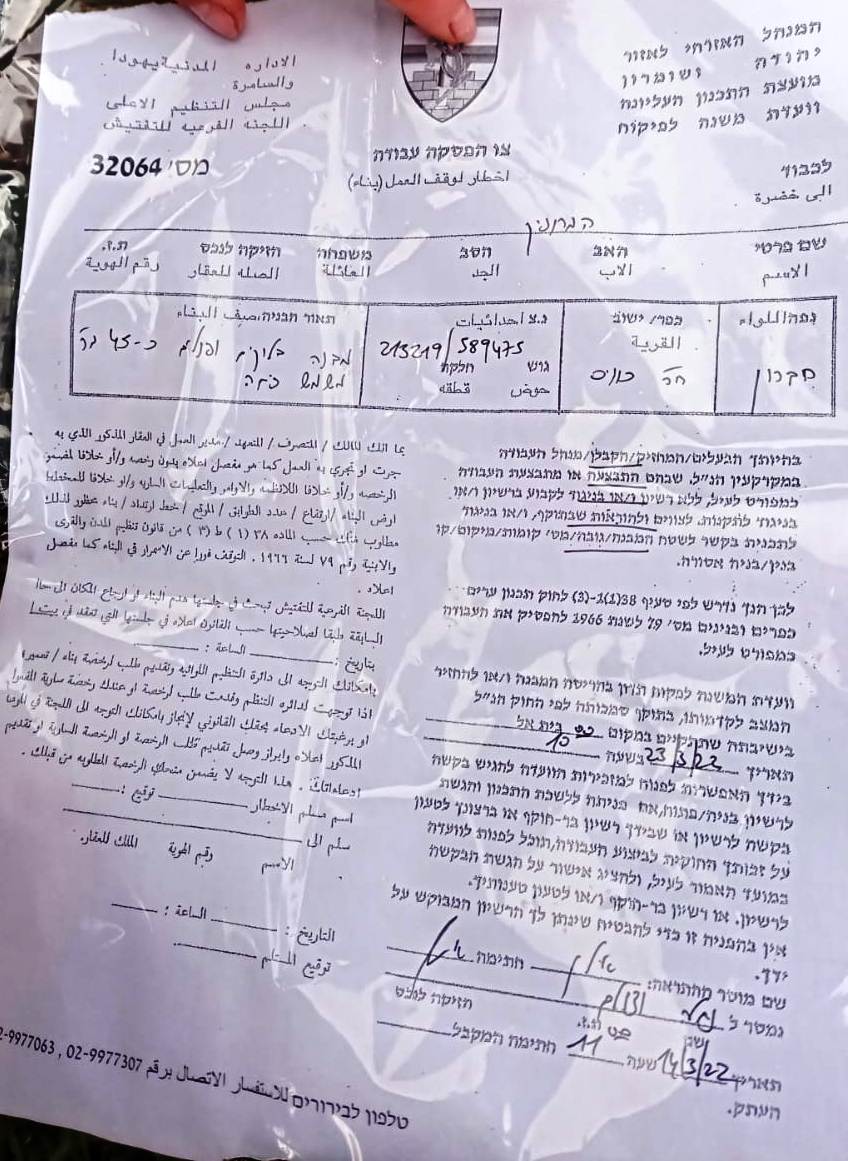 המנהל האזרחי לאזור
יהודה ושומרון
מועצת התכנון העליונה
וועדת משנה לפיקוח
الاداره المدنية يهودا
والسامرة
مجلس التنظيم الاعلى
اللجنه الفرعيه للتفتيش
צו הפסקה עבודה
اخطار لوقف العمل (بناء)
מס' 32064
לכבוד
الى حضرة
המחזיק
שם פרטי האב הסב משפחה חזיקה לנכס ת.ז.
الاسم الاب الجد العائلة الصله للعقار رقم الهوية
נפה اللواء
חברון
כפר/ ישוב
القرية
נ.צ احداثيات
213219/589475
גוש חלקה
حوض قطقه
תאור הבניה،صيف البناء
מבנה בלוקים כ-45 מ"ר
משמש
בהיותך הבעלים/המחזיק/הקבלן/מנהל העבודה
במקרקעין הנ"ל, שבהם התבצעה או מתבצעת העבודה
כמפורט לעיל, ללא רשיון ו/או בניגוד לקבוע ברשיון ו/או
בניגוד לתקנות, לצווים ולהוראות שבתוקף, ו/או בניגוד
לתכנית בקשר לשטח המבנה/גובה/מס' קומות/מיקום/קו
בנין/בניה אסורה.
לכן הנך נדרש לפי סעיף 38(1)-(3) לחוק תכנון ערים
כפרים ובנינים מס' 79 לשנת 1966 להפסיק את העבודה
כמפורט לעיל.
וועדת המשנה לפקוח תדון בהריסת המבנה ו/או להחזיר
המצב לקדמותו, בתוקף סמכותה לפי החוק הנ"ל
בישיבתה שתקיים במקום בית אל
תאריך 23/3/22 בשעה 10
בידך האפשרות לפנות למזכירות הוועדה להגיש בקשה
לרשיון בניה/פתוח, אם פנית ללשכת התכנון והגשת
בקשה לרשיון או שבידך רשיון בר-תוקף או ברצונך לטעון
על זכותך החוקית לביצוע העבודה, תוכל לפנות לוועדה
במועד האמור לעיל, ולהציג אישור על הגשת הבקשה
לרשיון. או רשיון בר-תוקף ו/או לטעון טענותיך.
אין בהפניה זו כדי להבטיח שינתן לך הרשיון המבוקש על
ידך.
שם מוסר מההתראה: חתימה
נמסר ל חזיקה לנכס
ת.ז.
תאריך 14/3/22 שעה 11 חתימה המקבל
העתק.
بما انك المالك / المتصرف / المتعهد / مدير العمل في العقار المذكور الذي به
جرت او تجري به العمل كما هو مفصل اعلاه بدون رخصه و/أو خلافا
الرخصه و/أو خلافا للانظمه والاوامر والتعليمات الساريه و/او خلافا للمخطط
ارض البناء /ارتفاع / عدد الطوابق / الموقع / خط ارتداد / بناء محظور لذلك
مطلوب منك حسب الماده ٣٨ (١) ط (٣) من قانون تنظيم المدن والقرى
والابنية رقم ٧٩ لسنة ١٩٦٦ . التوقف فورا عن الاستمرار في البناء كما مفصل
اعلاه .
اللجنة الفرعية للتفتيش تبحث في جلستها هدم البناء او ارجاع المكان الى
السابقة طبقا لصلاحيتها حسب القانون اعلاه في جلستها التي تعقد في
بتاريخ : الساعة :
بامكانك التوجه الى دائرة التنظيم اللوائيه وتقديم طلب لرخصة بناء /
اذا توجهت لدائره التنظم وقدمت طلب لرخصة او عندك رخصة سارية
او برغبتك الادعاء بحقك القانوني لإنجاز بامكانك التوجه الى اللجنة في
المذكور اعلاه وابراز وصل تقديم طلب الرخصة او الرخصة السارية او تقديم
ادعاءاتك . هذا التوجه لا يضمن منحك الرخصة المطلوبه من قبلك .
اسم مسلم الاخطار توقيع :
سلم الى
الاسم رقم الهوية المالك للعقار.
التاريخ : الساعة :
توقيع المستلم
טלפון לבירורים للاستفسار الاتصال برقم 02-9977307 , 2-9977063